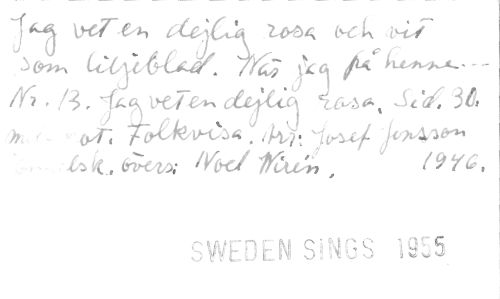 Jag vet en dejlig rosa och vit
som liljeblad. När jag på henne...
Nr. 13. Jag vet en dejlig rosa. Sid. 30.
ot. Folkvisa. Arr: Josef Jonsson
elsk. övers: Noel Wirén. 1946.
SWEDEN SINGS 1955